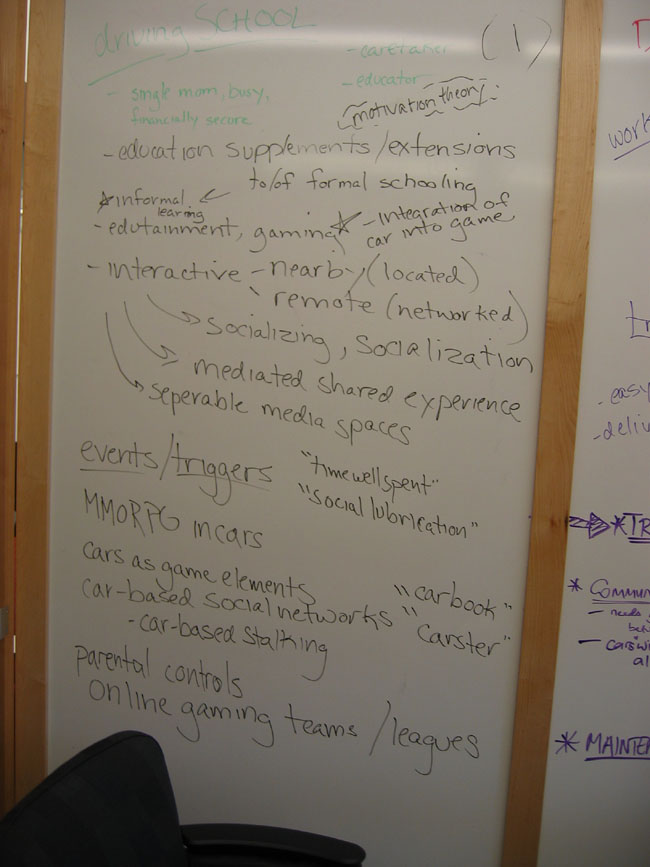 driving SCHOOL
(1)
- caretaker
- educator
- single mom, busy,
financially secure
motivation theory:
- education supplements/extensions
to/of formal schooling
*informal
learning
- edutainment, gaming
- integration of
car into game
- interactive - nearby (located)
remote (networked)
socializing, socialization
mediated shared experience
seperable media spaces
events/triggers
"time well spent"
"social lubrication"
MMORPG in cars
cars as game elements
car-based social networks
"carbook"
"Carster"
- car-based stalking
parental controls
Online gaming teams/leagues
D
work
- easy
- deliv
*TR
* COMMUN
- needs
beh
- cars w
al
* MAINTEN